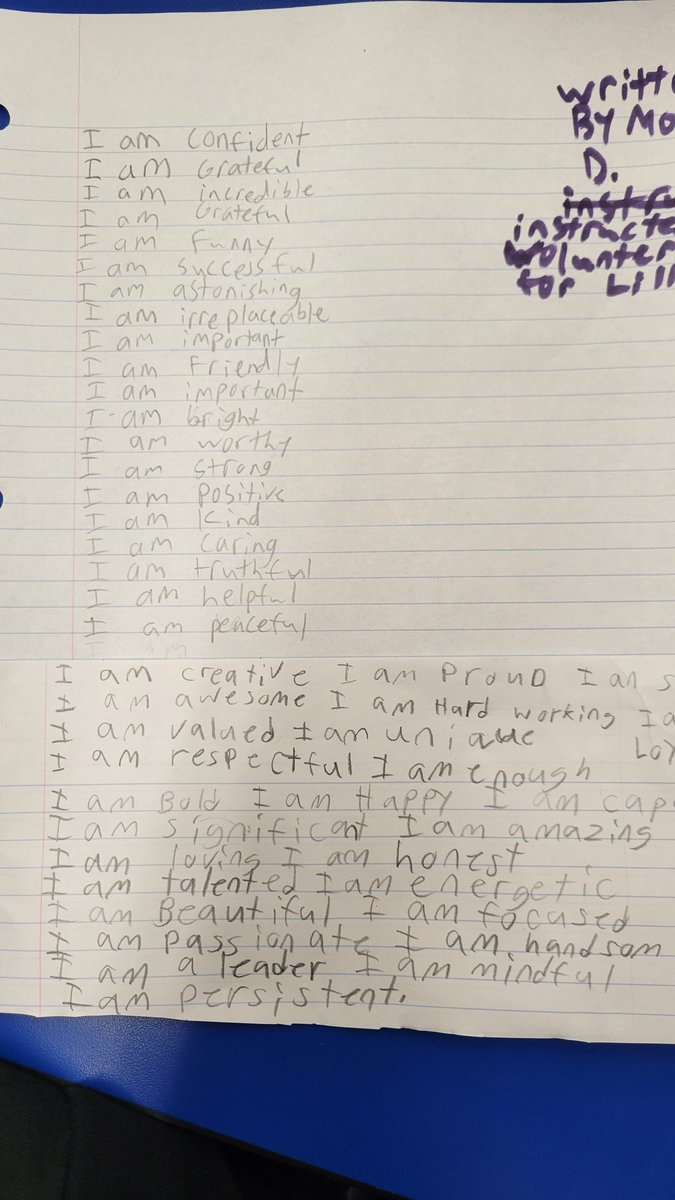 I am confident
I am Grateful
I am incredible
I am Grateful
I am funny
I am successful
I am astonishing
I am irreplaceable
I am important
I am Friendly
I am important
I am bright
I am worthy
I am strong
I am positive
I am kind
I am caring
I am truthful
I am helpful
I am peaceful
I am
I am creative I am ProuD I an s
I am awesome I am Hard working I a
I am valued I am uniqUe Loy
I am respectful I am enough
I am Bold I am Happy I am cap
I am significant I am amazing
I am loving I am honest
I am talented I am energetic
I am Beautiful I am focused
I am passionate I am handsom
I am a leader I am mindful
I am persistent.
writt
BY Mo
D.
instru
instructe
Wolunter
for Lill